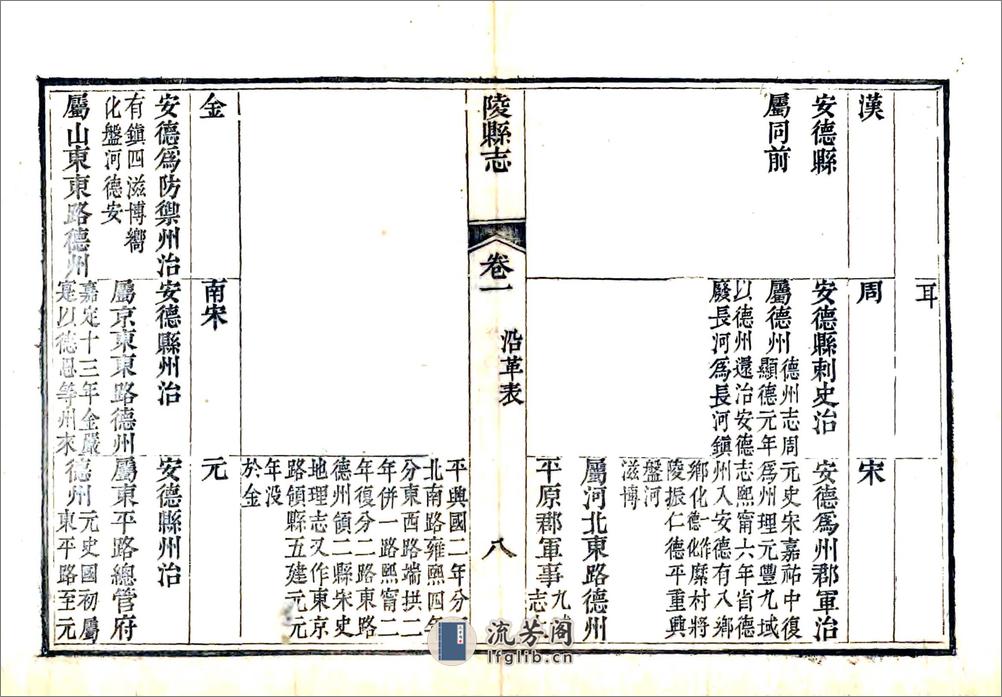 漢
安德縣
屬同前
周
安德縣刺史治
屬德州德州志周
顯德元年
以德州還治安德
廢長河爲長河鎮
宋
安德爲州郡軍治
元史宋嘉祐中復
爲州理元豐九域
志熙甯六年省德
州入安德有八鄉
鄉化一作德化糜村將
陵振仁德平重興
盤河
滋博
屬河北東路德州
平原郡軍事九
志
陵縣志
卷一
沿革表
八
平興國二年分
北南路雍熙四年
分東西路端拱二
年併一路熙甯二
年復分二路東路
德州領二縣宋史
地理志又作東京
路領縣五建元元
年沒
於金
金
安德爲防禦州治
有鎮四滋博嚮
化盤河德安
屬山東東路德州
南宋
安德縣州治
屬京東東路德州
嘉定十三年金嚴
寔以德恩等州來
元
安德縣州治
屬東平路總管府
德州元史國初屬
東平路至元
流芳閣
lfglib.cn